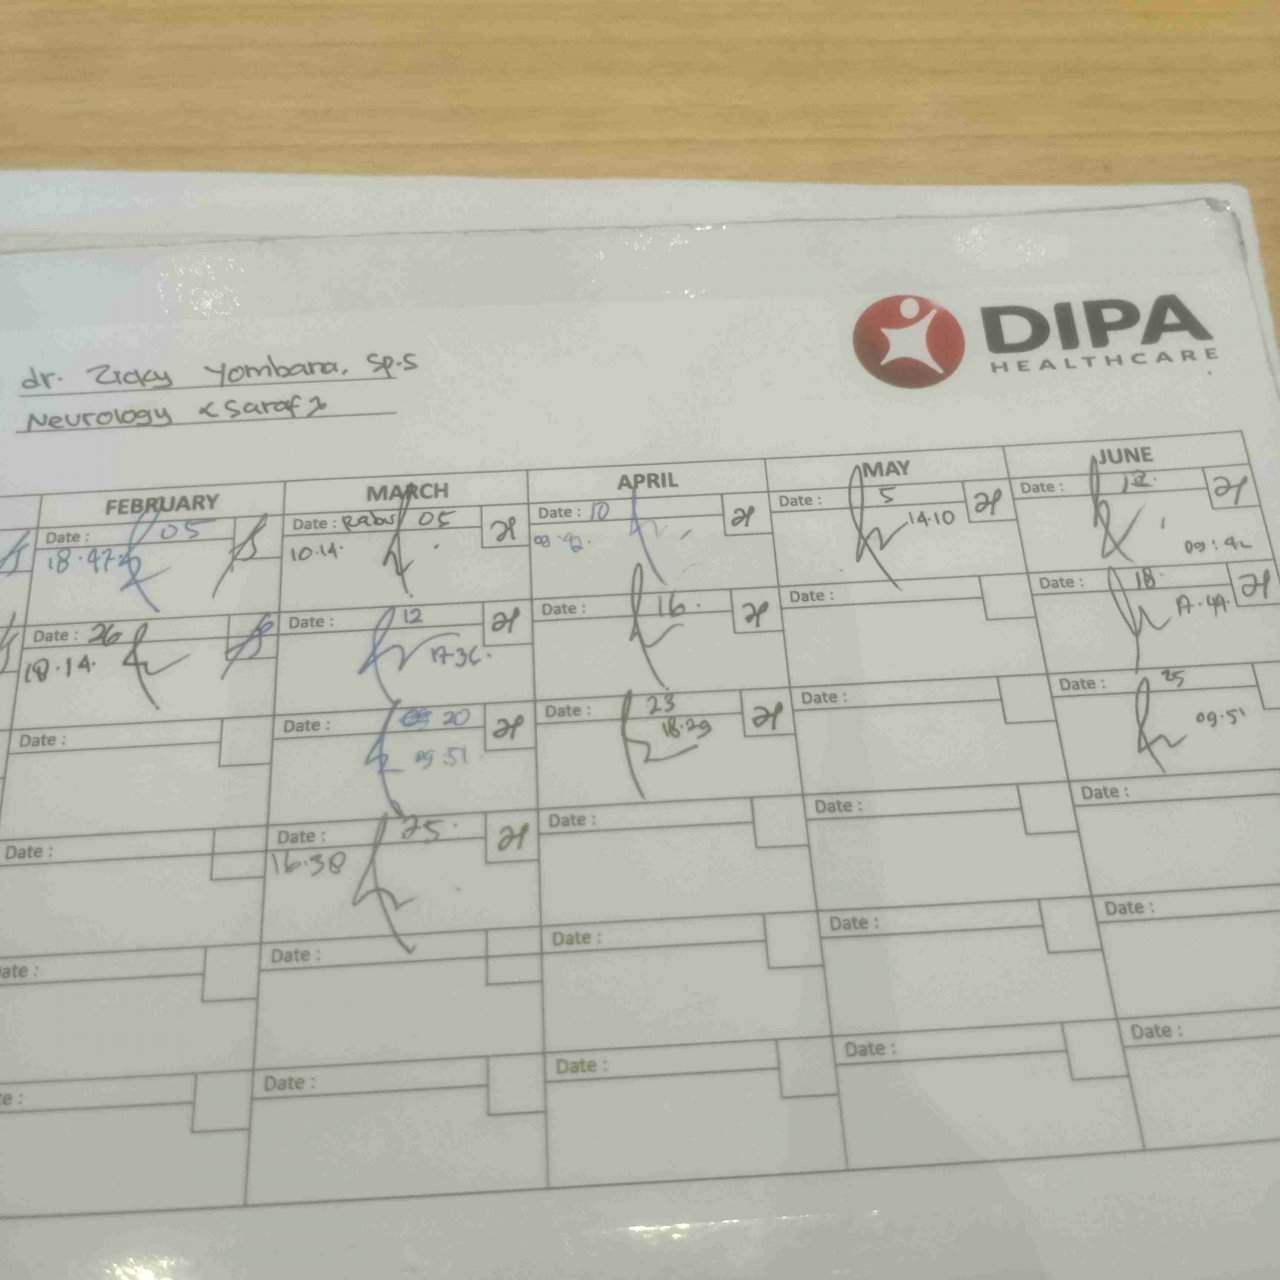 DIPA
HEALTHCARE
dr. Zicky Yombara, Sp.S
Neurology <Saraf>
FEBRUARY MARCH APRIL MAY JUNE
Date : 05 Date : Rabu 05 Date : 10 Date : 5 Date : 12
18.47 10.14. 09.42. 14.10 09:42
Date : 26 Date : 12 Date : 16. Date : Date : 18.
18.14. 17.36. 17.49.
Date : Date : 20 Date : 23 Date : Date : 25
09.51 18.29 09.51
Date : Date : 25. Date : Date : Date :
16.38
ate : Date : Date : Date : Date :
te : Date : Date : Date : Date :